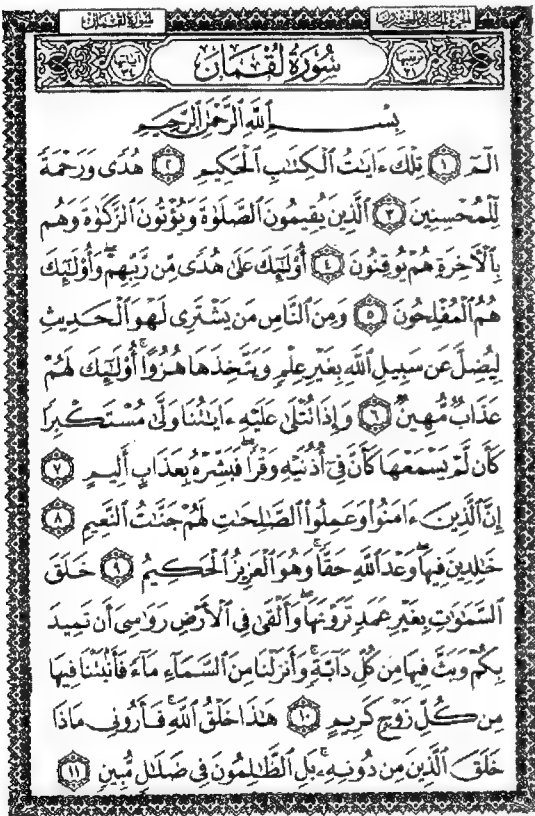 سُورَةُ لُقْمَان
الجزء الحادي والعشرون
آياتها ٣٤
سُورَةُ لُقْمَان
ترتيبها ٣١
بِسْمِ ٱللَّهِ ٱلرَّحْمَٰنِ ٱلرَّحِيمِ
الٓمٓ ١ تِلْكَ ءَايَٰتُ ٱلْكِتَٰبِ ٱلْحَكِيمِ ٢ هُدًى وَرَحْمَةً
لِّلْمُحْسِنِينَ ٣ ٱلَّذِينَ يُقِيمُونَ ٱلصَّلَوٰةَ وَيُؤْتُونَ ٱلزَّكَوٰةَ وَهُم
بِٱلْءَاخِرَةِ هُمْ يُوقِنُونَ ٤ أُو۟لَٰٓئِكَ عَلَىٰ هُدًى مِّن رَّبِّهِمْ ۖ وَأُو۟لَٰٓئِكَ
هُمُ ٱلْمُفْلِحُونَ ٥ وَمِنَ ٱلنَّاسِ مَن يَشْتَرِى لَهْوَ ٱلْحَدِيثِ
لِيُضِلَّ عَن سَبِيلِ ٱللَّهِ بِغَيْرِ عِلْمٍ وَيَتَّخِذَهَا هُزُوًا ۚ أُو۟لَٰٓئِكَ لَهُمْ
عَذَابٌ مُّهِينٌ ٦ وَإِذَا تُتْلَىٰ عَلَيْهِ ءَايَٰتُنَا وَلَّىٰ مُسْتَكْبِرًا
كَأَن لَّمْ يَسْمَعْهَا كَأَنَّ فِىٓ أُذُنَيْهِ وَقْرًا ۖ فَبَشِّرْهُ بِعَذَابٍ أَلِيمٍ ٧
إِنَّ ٱلَّذِينَ ءَامَنُوا۟ وَعَمِلُوا۟ ٱلصَّٰلِحَٰتِ لَهُمْ جَنَّٰتُ ٱلنَّعِيمِ ٨
خَٰلِدِينَ فِيهَا ۖ وَعْدَ ٱللَّهِ حَقًّا ۚ وَهُوَ ٱلْعَزِيزُ ٱلْحَكِيمُ ٩ خَلَقَ
ٱلسَّمَٰوَٰتِ بِغَيْرِ عَمَدٍ تَرَوْنَهَا ۖ وَأَلْقَىٰ فِى ٱلْأَرْضِ رَوَٰسِىَ أَن تَمِيدَ
بِكُمْ وَبَثَّ فِيهَا مِن كُلِّ دَآبَّةٍ ۚ وَأَنزَلْنَا مِنَ ٱلسَّمَآءِ مَآءً فَأَنۢبَتْنَا فِيهَا
مِن كُلِّ زَوْجٍ كَرِيمٍ ١٠ هَٰذَا خَلْقُ ٱللَّهِ فَأَرُونِى مَاذَا
خَلَقَ ٱلَّذِينَ مِن دُونِهِۦ ۚ بَلِ ٱلظَّٰلِمُونَ فِى ضَلَٰلٍ مُّبِينٍ ١١